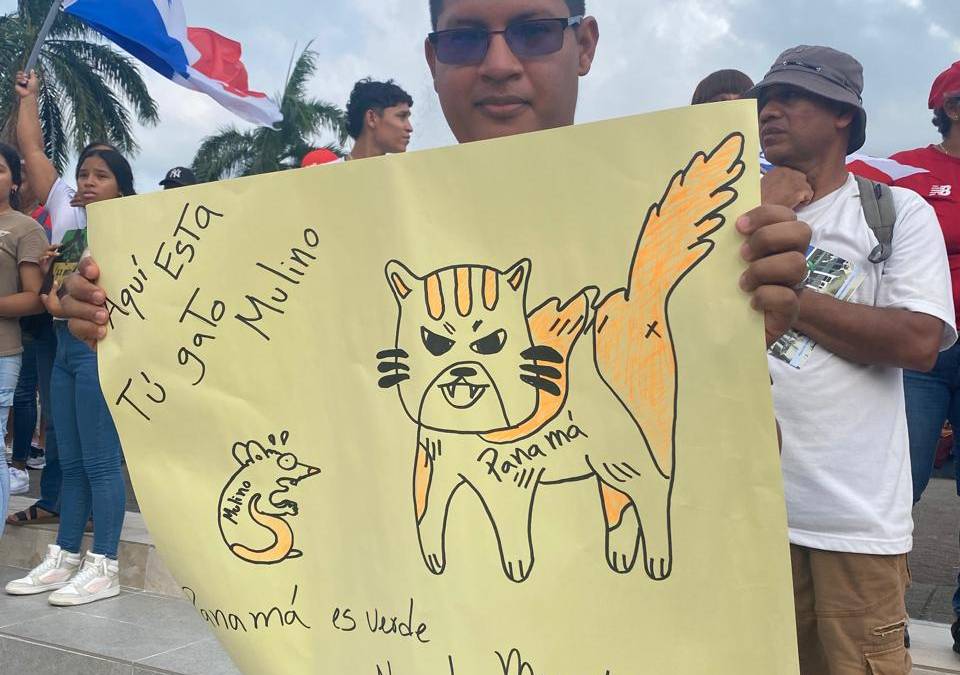 Aquí Esta
Tú gaTo
Mulino
Panamá
Mulino
Panamá es verde
NY
NB